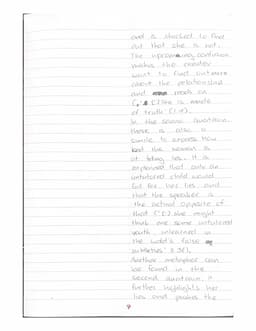 and is shocked to find
out that she is not.
The upcoming confusion
makes the reader
want to find out more
about the relationship
and reads on
('... she is made
of truth' (l.1)).
In the second quatrain
there is also a
simile to express how
bad the woman is
at telling lies. It is
expressed that only an
untutored child would
fall for her lies and
that the speaker is
the actual opposite of
that ('(...) she might
think me some untutored
youth, unlearned in
the world's false
subtleties' l.3f.).
Another metaphor can
be found in the
second quatrain. It
further highlights her
lies and makes the